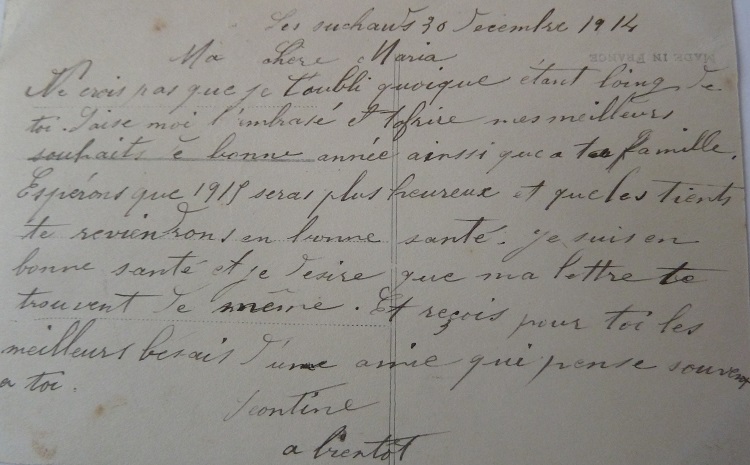 Les suchauds 30 decembre 1914
Ma chère Maria
MADE IN FRANCE
Ne crois pas que je t'oubli quoique étant loing de
toi. Laise moi t'embrasé et t'ofrire mes meilleurs
souhaits de bonne année ainsi que a ta famille.
Espérons que 1915 seras plus heureux et que les tients
te reviendrons en bonne santé. Je suis en
bonne santé et je desire que ma lettre te
trouvent de même. Et reçois pour toi les
meilleurs besais d'une amie qui pense souvent
a toi.
Leontine
a bientot